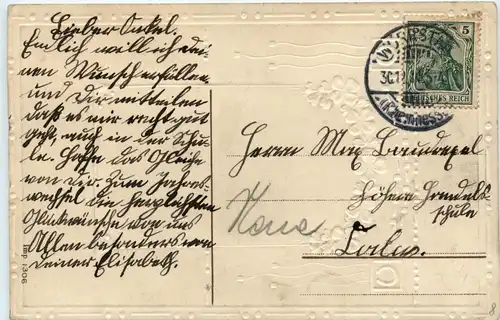 Lieber Onkel,
Endlich will ich dei-
nen Wunsch erfüllen
und Dir mitteilen
daß es mir recht gut
geht, auch in der Schu-
le. Hoffe das Gleiche
von Dir. Zum Jahres-
wechsel die herzlichsten
Glückwünsche von uns
Allen besonders von
Deiner Elisabeth.
Imp 1306
5
DEUTSCHES REICH
30.12.
Herrn Max
Höhere Handels
schule
Calw.